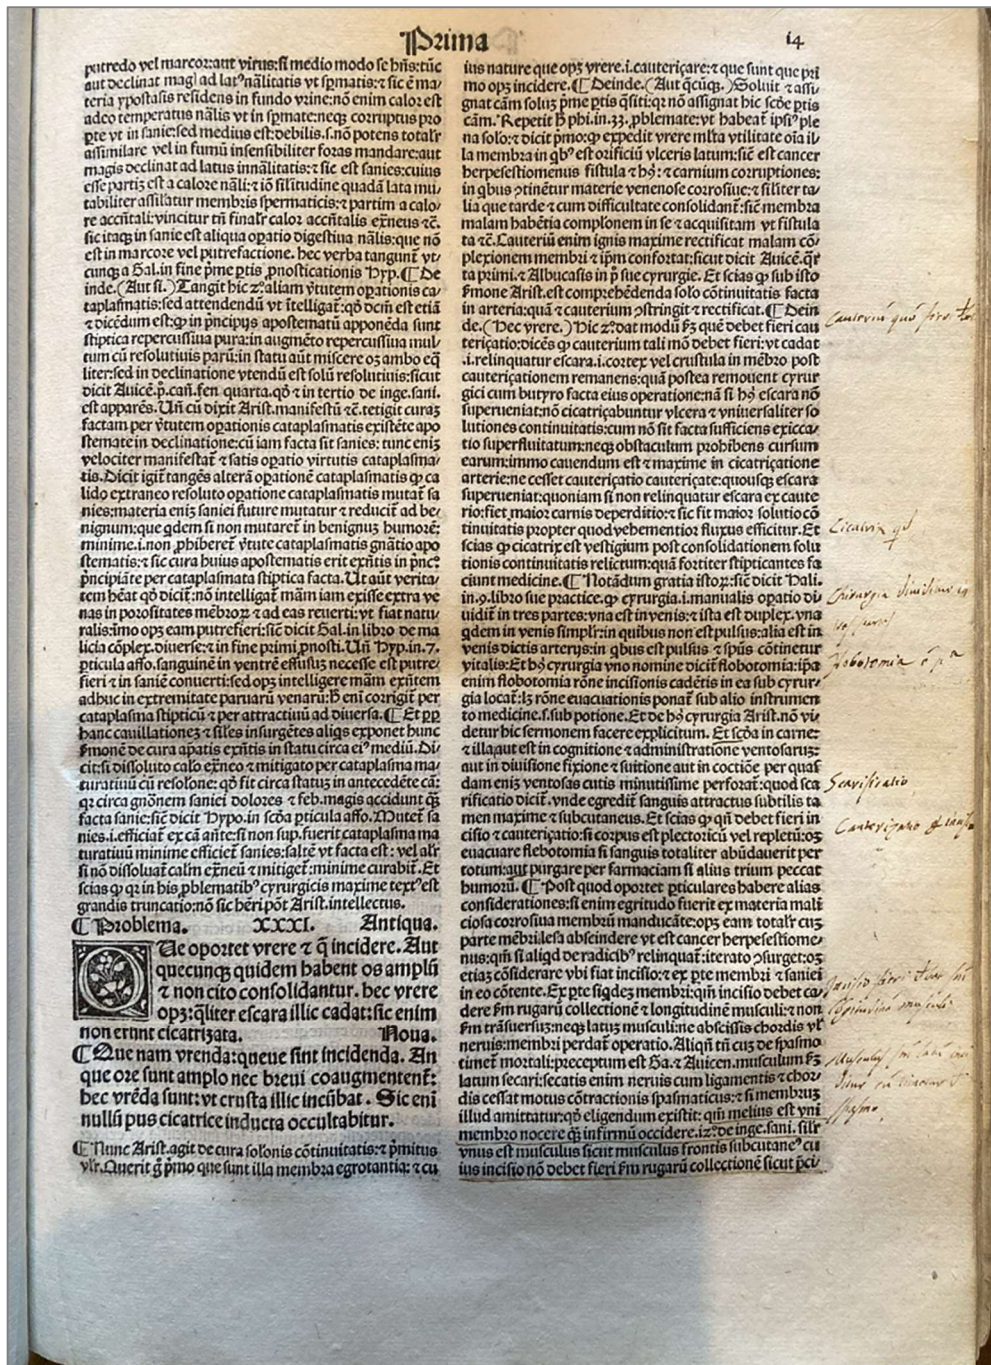 Prima
14
putredo vel marcor:aut virus:si medio modo se hñs:tũc
aut declinat magĩ ad lat⁹nãlitatis vt spmatis:⁊ sic ẽ ma⸗
teria ypostasis residens in fundo vrine:nõ enim calor est
adeo temperatus nãlis vt in spmate:neqꝫ corruptus pro
pte vt in sanie:sed medius est:debilis.s.nõ potens totalr
assimilare vel in fumũ insensibiliter foras mandare:aut
magis declinat ad latus innãlitatis:⁊ sic est sanies:cuius
esse partiꝫ est a calore nãli:⁊ iõ silitudine quadã lata mu⸗
tabiliter assilatur membris spermaticis:⁊ partim a calo⸗
re accñtali:vincitur tñ finalr calor accñtalis exñeus ⁊c̃.
sic itaqꝫ in sanie est aliqua opatio digestiua nãlis:que nõ
est in marcore vel putrefactione. hec verba tangunt vt⸗
cunqꝫ a Gal.in fine pme ptis pnosticationis Hyp.¶ De
inde.(Aut si.)Tangit hic 2ᵒ.aliam vtutem opationis ca⸗
taplasmatis:sed attendendũ vt ĩtelligat̃:qȯ dcm̃ est etiã
⁊ dicẽdum est:ꝙ in pncipijs apostematũ apponẽda sunt
stiptica repercussiua pura:in augmẽto repercussiua mul
tum cũ resolutiuis parũ:in statu aũt miscere oꝫ ambo eq̃
liter:sed in declinatione vtendũ est solũ resolutiuis:sicut
dicit Auicẽ.p̃.cañ.fen quarta.qȯ ⁊ in tertio de inge.sani.
est apparẽs.Uñ cũ dixit Arist.manifestũ ⁊c̃.tetigit curaꝫ
factam per vtutem opationis cataplasmatis existẽte apo
stemate in declinatione:cũ iam facta sit sanies: tunc eniꝫ
velociter manifestat̃ ⁊ satis opatio virtutis cataplasma⸗
tis.Dicit igit̃ tangẽs alterã opationẽ cataplasmatis ꝙ ca
lido extraneo resoluto opatione cataplasmatis mutat̃ sa
nies:materia eniꝫ saniei future mutatur ⁊ reducit̃ ad be⸗
nignum:que qdem si non mutaret̃ in benignuꝫ humorẽ:
minime.i.non phiberet̃ vtute cataplasmatis gnãtio apo
stematis:⁊ sic cura huius apostematis erit exñtis in pñc°
pncipiãte per cataplasmata stiptica facta.Ut aũt verita⸗
tem hẽat qȯ dicit̃:nõ intelligat mãm iam exisse extra ve
nas in porositates mẽbroꝝ ⁊ ad eas reuerti:vt fiat natu⸗
ralis:ĩmo opꝫ eam putrefieri:sic̃ dicit Gal.in libro de ma
licia cõplex.diuerse:⁊ in fine primi pnosti.Uñ Hyp.in.7.
pticula affo.sanguinẽ in ventrẽ effusuꝫ necesse est putre⸗
fieri ⁊ in saniẽ conuerti:sed opꝫ intelligere mãm exñtem
adhuc in extremitate paruarũ venarũ:h̃ eni corrigit̃ per
cataplasma stipticũ ⁊ per attractiuũ ad diuersa.¶ Et pp
hanc cauillationeꝫ ⁊ siles insurgẽtes aliqs exponet hunc
smonẽ de cura apatis exñtis in statu circa ei⁹ mediũ.Di⸗
cit:si dissoluto calo exñeo ⁊ mitigato per cataplasma ma⸗
turatiuũ cũ resolone: qȯ fit circa statuꝫ in antecedẽte cã:
qꝛ circa gnõnem saniei dolores ⁊ feb.magis accidunt q̃ꝫ
facta sanie:sic̃ dicit Hypo.in scða pticula affo.Mutet̃ sa
nies.i.efficiat̃ ex cã añte:si non sup.fuerit cataplasma ma
turatiuũ minime efficiet̃ sanies:saltẽ vt facta est: vel alr̃
si nõ dissoluat̃ calm̃ exñeũ ⁊ mitiget̃:minime curabit̃.Et
scias ꝙ qꝛ in his pblematib⁹ cyrurgicis maxime text⁹est
grandis truncatio:nõ sic hẽri põt Arist.intellectus.
¶ Problema. XXXI. Antiqua.
QUe oportet vrere ⁊ q̃ incidere. Aut
quecunqꝫ quidem habent os amplũ
⁊ non cito consolidantur. hec vrere
opꝫ:qliter escara illic cadat:sic enim
non erunt cicatrizata. Noua.
¶ Que nam vrenda:queue sint incidenda. An
que ore sunt amplo nec breui coaugmentent̃:
hec vrẽda sunt:vt crusta illic incũbat. Sic eni
nullũ pus cicatrice inducta occultabitur.
¶ Nunc Arist.agit de cura solonis cõtinuitatis:⁊ pmitus
vlr.Querit g̃ pmo que sunt illa membra egrotantia:⁊ cu
ius nature que opꝫ vrere.i.cauteriçare:⁊ que sunt que pri
mo opꝫ incidere.¶ Deinde.(Aut q̃cũqꝫ.)Soluit ⁊ assi⸗
gnat cãm soluꝫ pme ptis q̃siti:qꝛ nõ assignat hic scðe ptis
cãm.Repetit h̃ phi.in.33.pblemate:vt habeat̃ ipsi⁹ ple
na solo:⁊ dicit pmo:ꝙ expedit vrere mlta vtilitate oia il⸗
la membra in qb⁹ est orificiũ vlceris latum:sic̃ est cancer
herpesestiomenus fistula ⁊ hꝰ:⁊ carnium corruptiones:
in qbus ↄtinẽtur materie venenose corrosiue:⁊ siliter ta⸗
lia que tarde ⁊ cum difficultate consolidant̃:sic̃ membra
malam habẽtia complonem in se ⁊ acquisitam vt fistula
ta ⁊c̃.Cauteriũ enim ignis maxime rectificat malam cõ⸗
plexionem membri ⁊ ipm confortat:sicut dicit Auicẽ.q̃r
ta primi.⁊ Albucasis in p̃ sue cyrurgie. Et scias ꝙ sub isto
smone Arist.est comprehẽdenda solo cõtinuitatis facta
in arteria:quã ⁊ cauterium ↄstringit ⁊ rectificat.¶ Dein
de.(Hec vrere.)Hic 2ᵒ.dat modũ sꝫ quẽ debet fieri cau
teriçatio:dicẽs ꝙ cauterium tali mõ debet fieri:vt cadat
.i.relinquatur escara.i.cortex vel crustula in mẽbro post
cauteriçationem remanens:quã postea remouent cyrur
gici cum butyro facta eius operatione:nã si hꝰ escara nõ
superueniat:nõ cicatriçabuntur vlcera ⁊ vniuersaliter so
lutiones continuitatis:cum nõ sit facta sufficiens exicca⸗
tio superfluitatum:neqꝫ obstaculum prohibens cursum
earum:immo cauendum est ⁊ maxime in cicatriçatione
arterie:ne cesset cauteriçatio cauteriçate:quousqꝫ escara
superueniat:quoniam si non relinquatur escara ex caute
rio:fiet maior carnis deperditio:⁊ sic fit maior solutio cõ
tinuitatis propter quod vehementior fluxus efficitur.Et
scias ꝙ cicatrix est vestigium post consolidationem solu
tionis continuitatis relictum:quã fortiter stipticantes fa
ciunt medicine.¶ Notãdum gratia istoꝝ:sic̃ dicit Hali.
in.9.libro sue practice.ꝙ cyrurgia.i.manualis opatio di
uidit̃ in tres partes:vna est in venis:⁊ ista est duplex.vna
qdem in venis simplr:in quibus non est pulsus:alia est in
venis dictis arterijs:in qbus est pulsus ⁊ spũs cõtinetur
vitalis:Et hꝰ cyrurgia vno nomine dicit̃ flobotomia:ipa
enim flobotomia rõne incisionis cadẽtis in ea sub cyrur⸗
gia locat̃:lꝫ rõne euacuationis ponat̃ sub alio instrumen
to medicine.s.sub potione.Et de hꝰ cyrurgia Arist.nõ vi⸗
detur hic sermonem facere explicitum. Et scða in carne:
⁊ illa aut est in cognitione ⁊ administratione ventosaruꝫ:
aut in diuisione fixione ⁊ suitione aut in coctiõe per quas
dam eniꝫ ventosas cutis minutissime perforat̃:quod sca
rificatio dicit̃.vnde egredit̃ sanguis attractus subtilis ta
men maxime ⁊ subcutaneus.Et scias ꝙ qñ debet fieri in
cisio ⁊ cauteriçatio:si corpus est plectoricũ vel repletũ:oꝫ
euacuare flebotomia si sanguis totaliter abũdauerit per
totum:aut purgare per farmaciam si alius trium peccat
humorũ.¶ Post quod oportet pticulares habere alias
considerationes:si enim egritudo fuerit ex materia mali
ciosa corrosiua membrũ manducãte:opꝫ eam totalr cuꝫ
parte mẽbri lesa abscindere vt est cancer herpesestiome⸗
nus:qm̃ si aliqd de radicib⁹ relinquat̃:iterato ↄsurget:oꝫ
etiaꝫ cõsiderare vbi fiat incisio:⁊ ex pte membri ⁊ saniei
in eo cõtente.Ex pte siqdeꝫ membri:qm̃ incisio debet ca⸗
dere sm rugarũ collectionẽ ⁊ longitudinẽ musculi:⁊ non
sm trãsuersuꝫ:neqꝫ latuꝫ musculi:ne abscissis chordis vl̃
neruis:membri perdat̃ operatio.Aliqñ tñ cuꝫ de spasmo
timet̃ mortali:preceptum est Ga.⁊ Auicen.musculum sꝫ
latum secari:secatis enim neruis cum ligamentis ⁊ chor⸗
dis cessat motus cõtractionis spasmaticus:⁊ si membruꝫ
illud amittatur:qȯ eligendum existit: qm̃ melius est vni
membro nocere q̃ꝫ infirmũ occidere.12ᵒ.de inge.sani. silr̃
vnus est musculus sicut musculus frontis subcutane⁹ cu
ius incisio nõ debet fieri sm rugarũ collectionẽ sicut pci⸗
Cicatrix
Chirurgia
Scarificatio